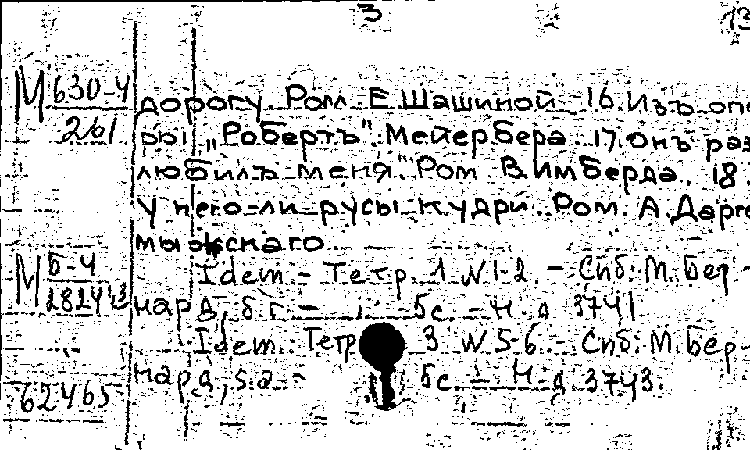 3
13
М 630-4 дорогу Ром Е Шашиной 16. Изъ оп
261 ры „Робертъ" Мейербера. 17. Онъ раз
любилъ меня" Ром В. Имберда. 18.
У него-ли русы кудри. Ром. А. Дарго
мыжскаго
М Б-4 Idem. – Тетр. 1 N 1-2. – Спб: М. Бер-
28243 нард, б.г. – Бс. – Н. д 3741
Idem. Тетр 3 N 5-6. – Спб: М. Бер-
62465 нард, s.a – Бс – Н. д 3743.